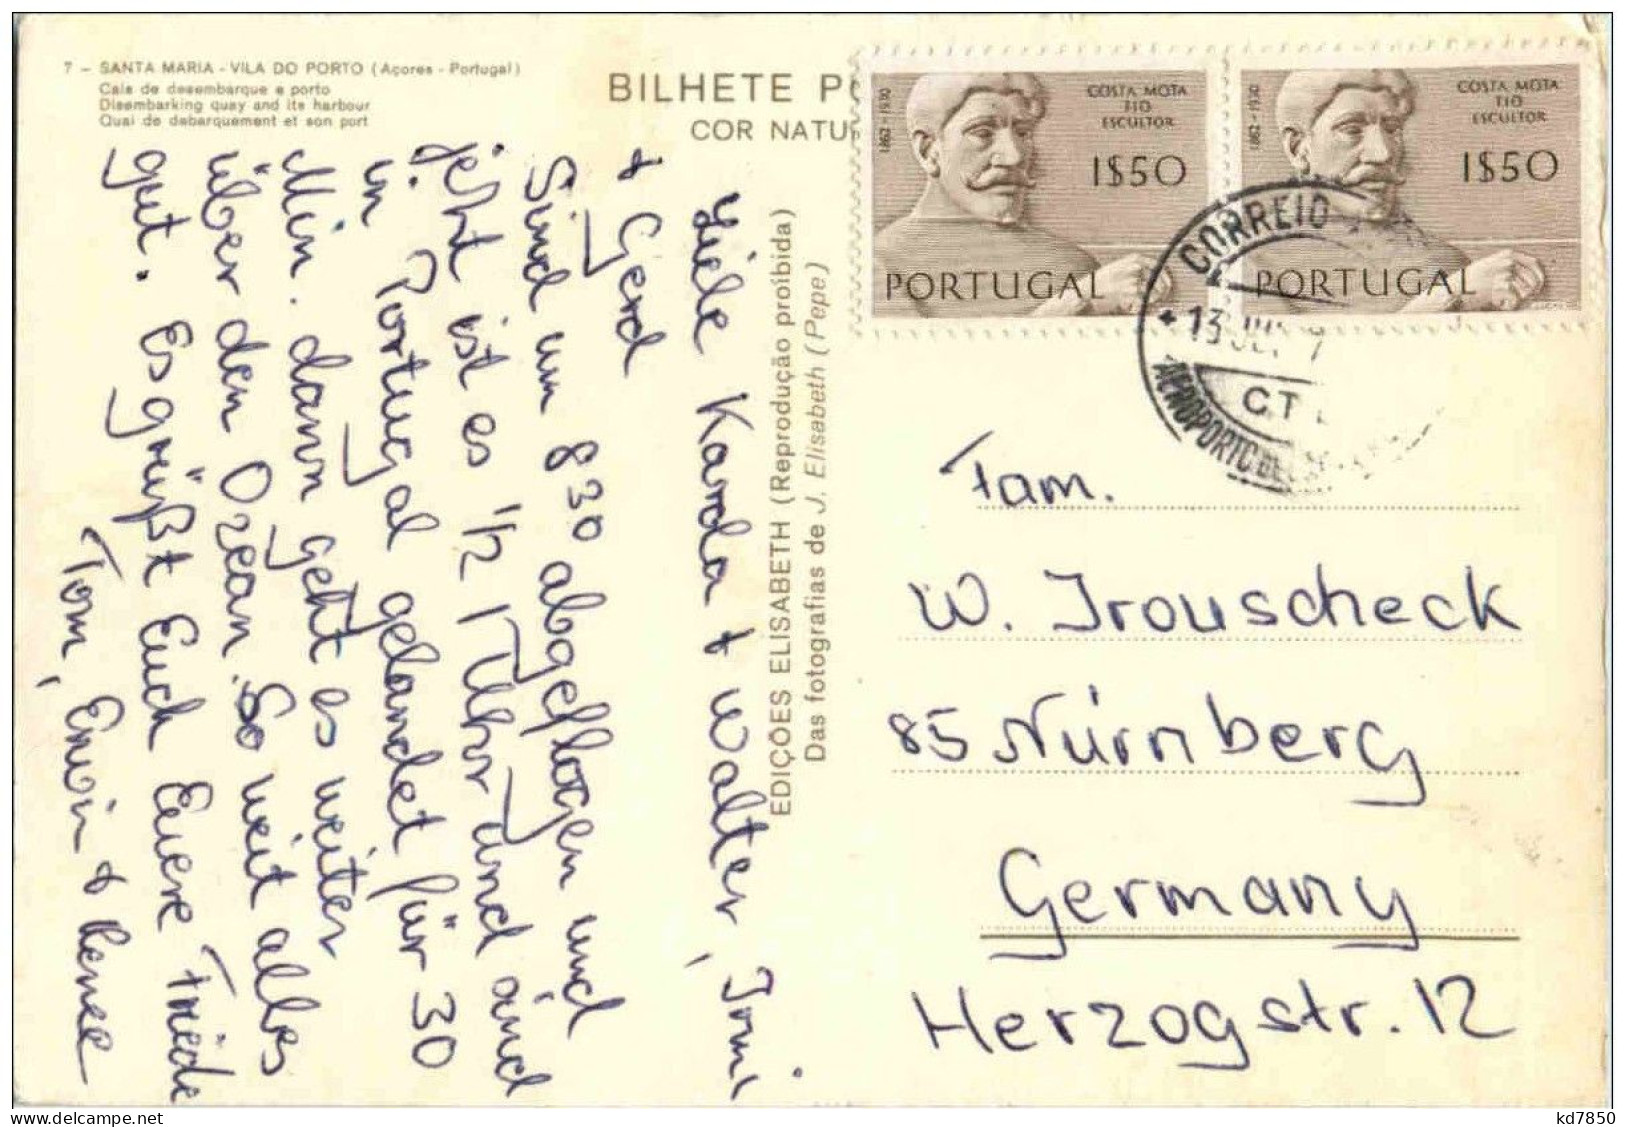 7 – SANTA MARIA - VILA DO PORTO (Açores - Portugal)
Cais de desembarque e porto
Disembarking quay and its harbour
Quai de debarquement et son port
BILHETE P
COR NATU
1862 - 1930
COSTA MOTA
TIO
ESCULTOR
1$50
PORTUGAL
1862 - 1930
COSTA MOTA
TIO
ESCULTOR
1$50
PORTUGAL
CORREIO
13 JUL
CT
AEROPORTO DE
EDIÇÕES ELISABETH (Reprodução proibida)
Das fotografias de J. Elisabeth (Pepe)
Liebe Karola + Walter, Irmi
+ Gerd
Sind um 830 abgeflogen und
jetzt ist es 1/2 1 Uhr und sind
in Portugal gelandet für 30
Min. dann geht es weiter
über den Ozean. So weit alles
gut. Es grüßt Euch Euere Friede
Tom, Erwin + Renee
Fam.
W. Irouscheck
85 Nürnberg
Germany
Herzogstr. 12
kd7850